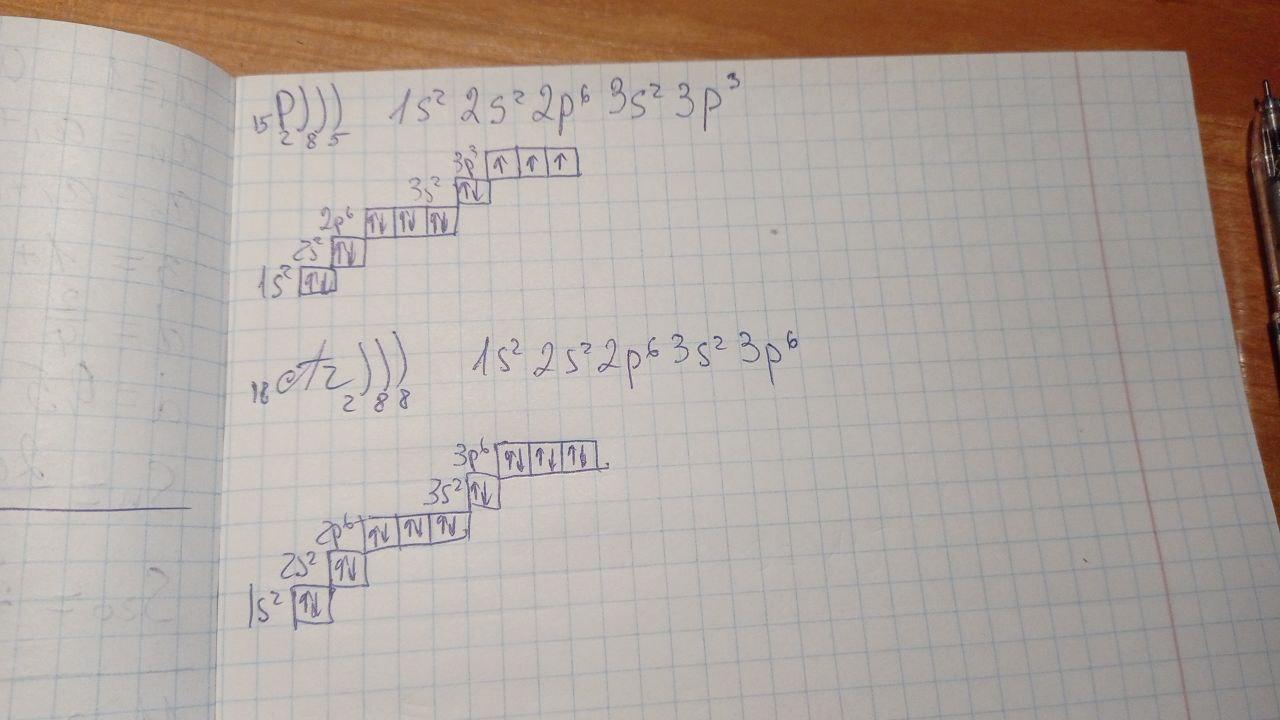 15P))) 1s² 2s² 2p⁶ 3s² 3p³
2 8 5
3p³ ↑ ↑ ↑
3s² ↑↓
2p⁶ ↑↓ ↑↓ ↑↓
2s² ↑↓
1s² ↑↓
18Ar))) 1s² 2s² 2p⁶ 3s² 3p⁶
2 8 8
3p⁶ ↑↓ ↑↓ ↑↓
3s² ↑↓
2p⁶ ↑↓ ↑↓ ↑↓
2s² ↑↓
1s² ↑↓